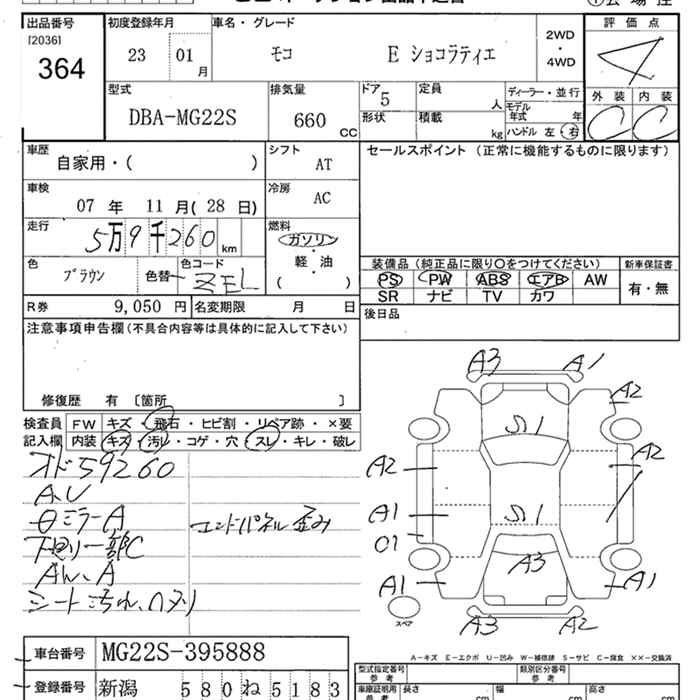 出品番号 初度登録年月 車名・グレード 2WD・4WD 評価点
[2036] 364 23 01月 モコ E ショコラティエ 4
型式 排気量 ドア 定員 ディーラー・並行 外装 内装
DBA-MG22S 660 CC 5 人 モデル年式 年 C C
形状 積載 kg ハンドル 左・右
車歴 シフト セールスポイント (正常に機能するものに限ります)
自家用・( ) AT
車検 冷房
07 年 11 月( 28 日) AC
走行 燃料
5万9千260 km ガソリン・軽・油 ( )
色 色コード 装備品 (純正品に限り○をつけてください) 新車保証書
ブラウン 色替 ZEL PS PW ABS エアB AW 有・無
SR ナビ TV カワ
R券 9,050 円 名変期限 月 日 後日品
注意事項申告欄 (不具合内容等は具体的に記入して下さい)
修復歴 有 [箇所 ]
検査員 FW キズ・飛石・ヒビ割・リペア跡・×要
記入欄 内装 キズ・汚レ・コゲ・穴・スレ・キレ・破レ
オド59260
AU
ミラーA
エンドパネル歪み
下廻り一部C
シート汚れ、
A3 A1
A2
A2 S1 A2
A1 S1
01
A3
A1 A1
スペア
A3 A2
A－キズ E－エクボ U－凹み W－補修跡 S－サビ C－腐食 ××－交換済
車台番号 MG22S-395888
型式指定番号 参考 類別区分番号 参考
登録番号 新潟 580 ね 5183
車庫証明用 参考 長さ cm 幅 cm 高さ cm